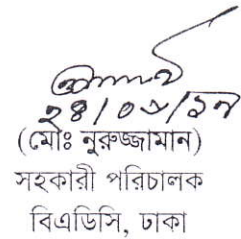 ২৪/০৬/১৭
(মোঃ নুরুজ্জামান)
সহকারী পরিচালক
বিএডিসি, ঢাকা